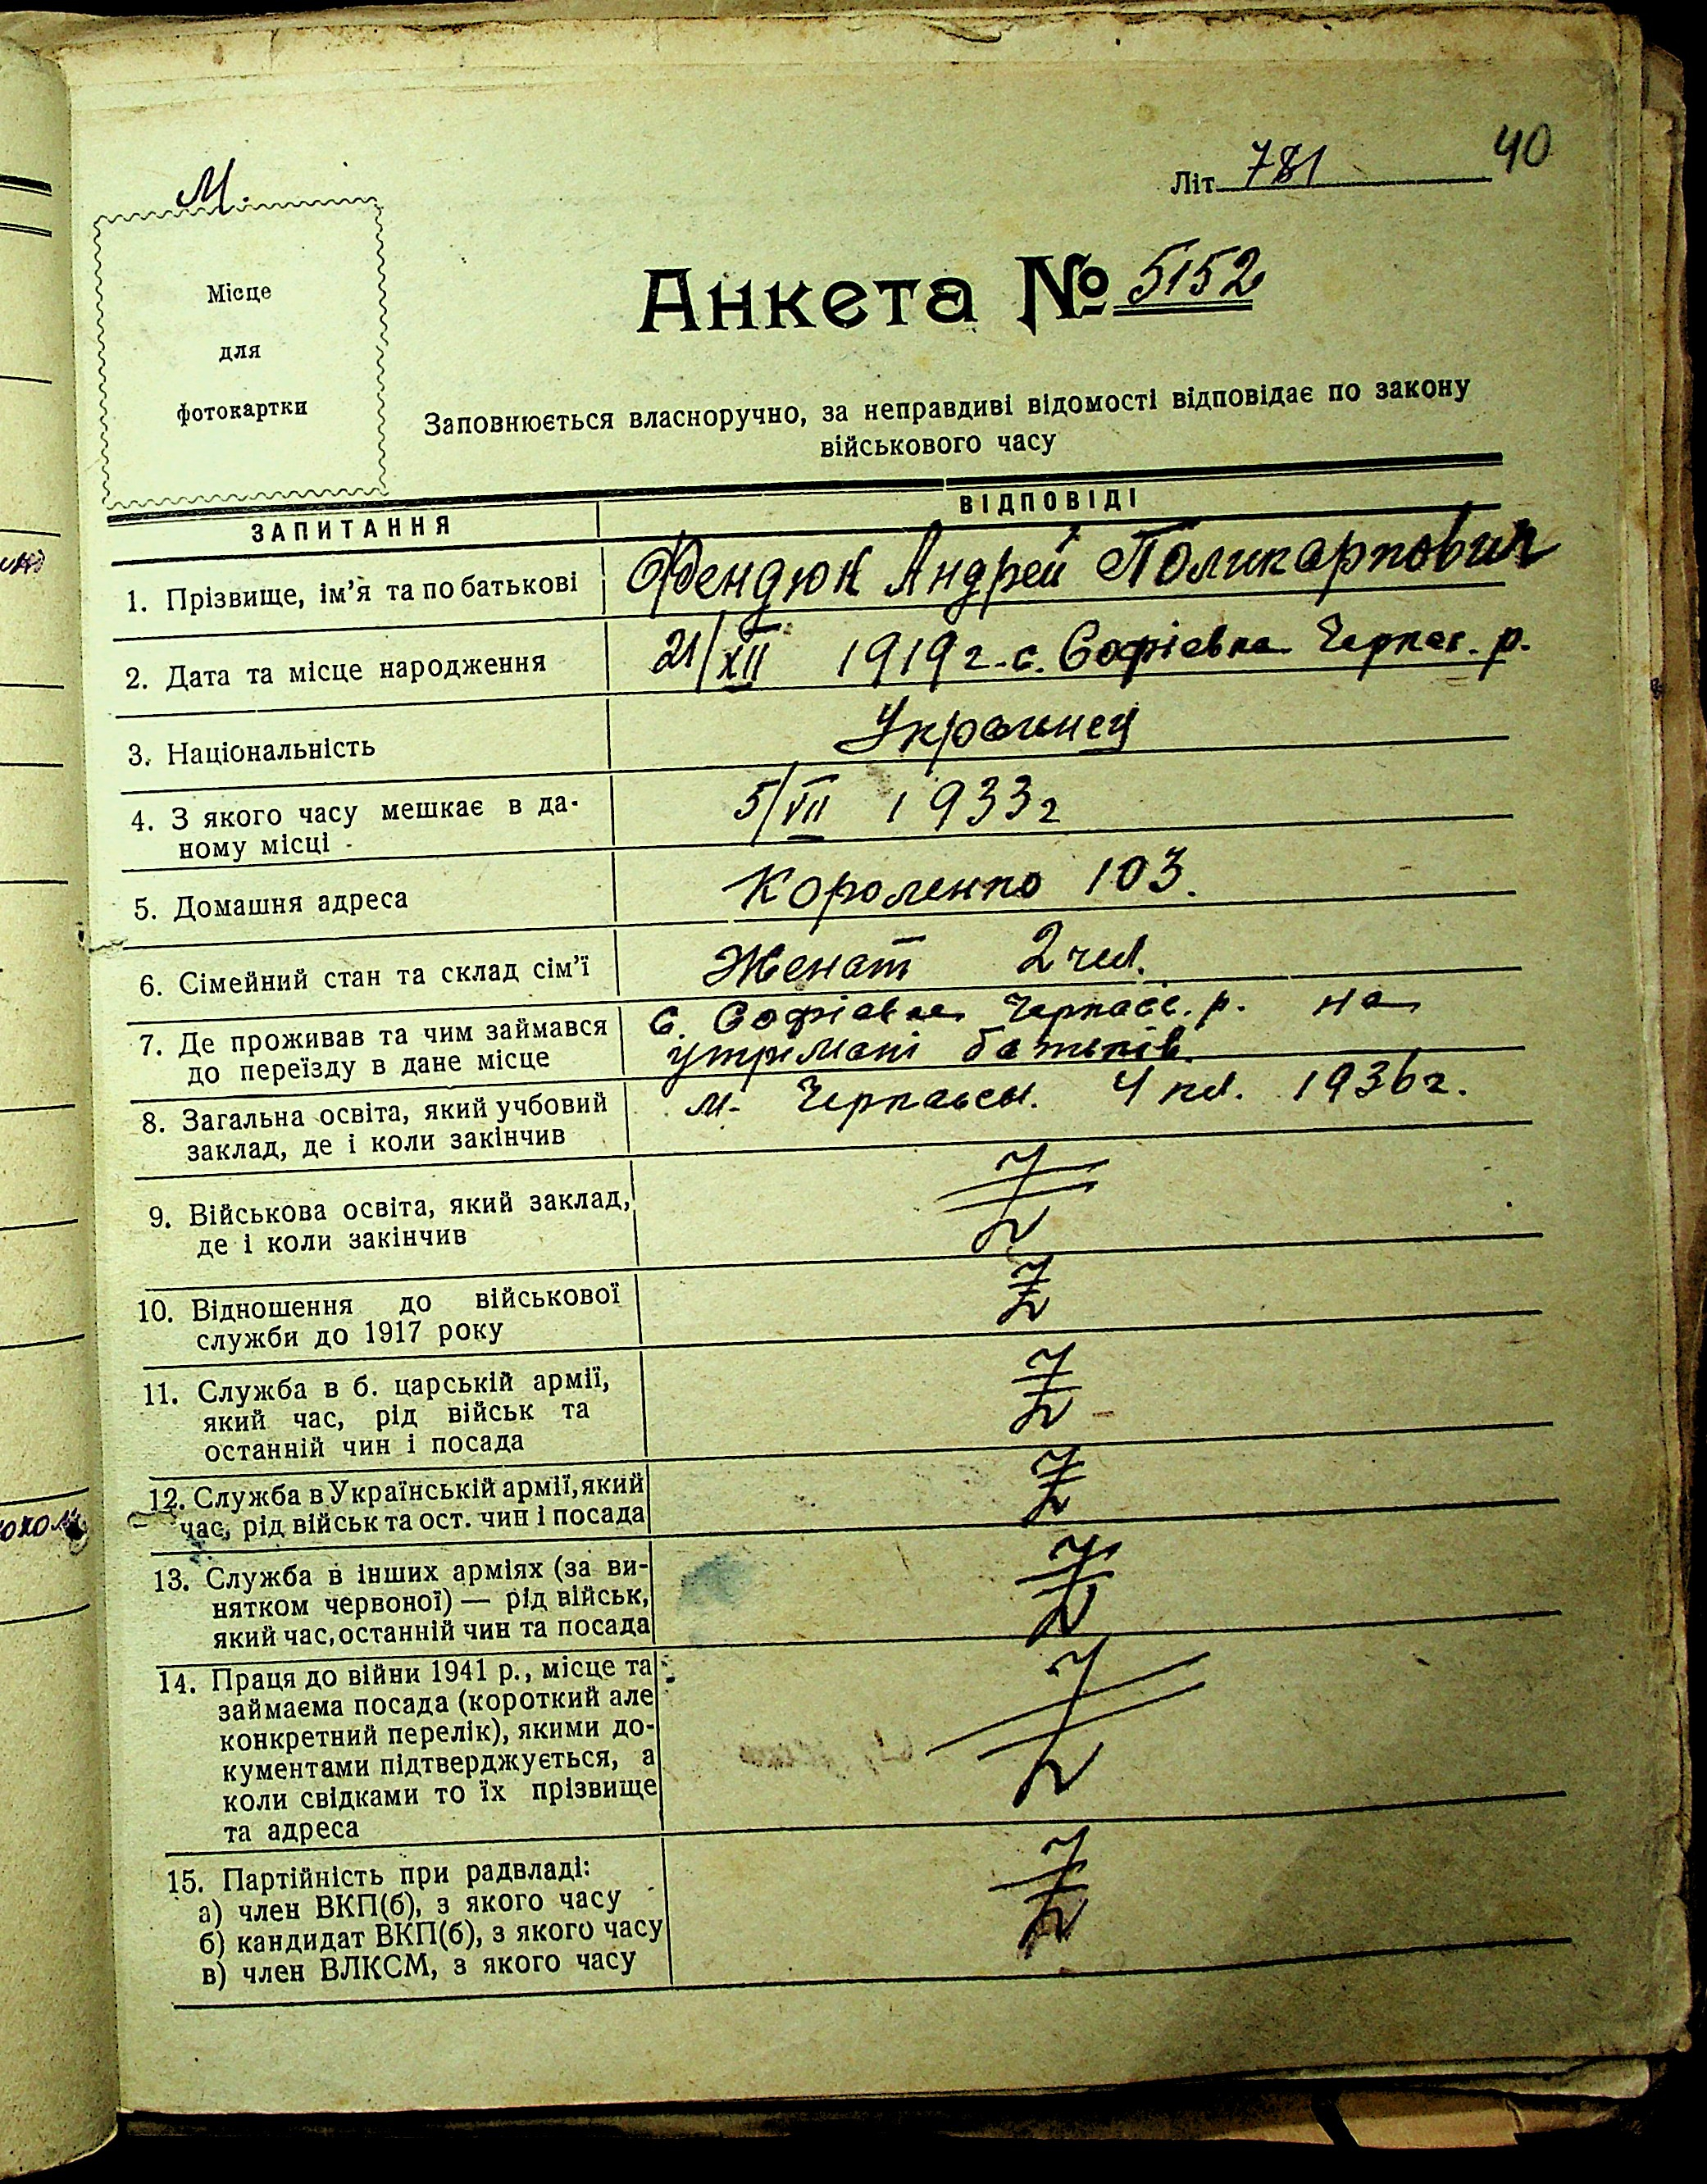 40
Літ. 781
М.
Місце
для
фотокартки
Анкета № 5152
Заповнюється власноручно, за неправдиві відомості відповідає по закону
військового часу
ЗАПИТАННЯ ВІДПОВІДІ
1. Прізвище, ім'я та по батькові Фендюк Андрей Поликарпович
2. Дата та місце народження 21/XII 1919 г. с. Софіевка Черкас. р.
3. Національність Украинец
4. З якого часу мешкає в да-
ному місці 5/VII 1933 г
5. Домашня адреса Короленко 103.
6. Сімейний стан та склад сім'ї Женат 2 чел.
7. Де проживав та чим займався с. Софіевка Черкасс. р. на
до переїзду в дане місце утримані батьків.
8. Загальна освіта, який учбовий м. Черкассы. 4 кл. 1936 г.
заклад, де і коли закінчив
9. Військова освіта, який заклад,
де і коли закінчив
10. Відношення до військової
служби до 1917 року
11. Служба в б. царській армії,
який час, рід військ та
останній чин і посада
12. Служба в Українській армії, який
час, рід військ та ост. чин і посада
13. Служба в інших арміях (за ви-
нятком червоної) — рід військ,
який час, останній чин та посада
14. Праця до війни 1941 р., місце та
займаєма посада (короткий але
конкретний перелік), якими до-
кументами підтверджується, а
коли свідками то їх прізвище
та адреса
15. Партійність при радвладі:
а) член ВКП(б), з якого часу
б) кандидат ВКП(б), з якого часу
в) член ВЛКСМ, з якого часу